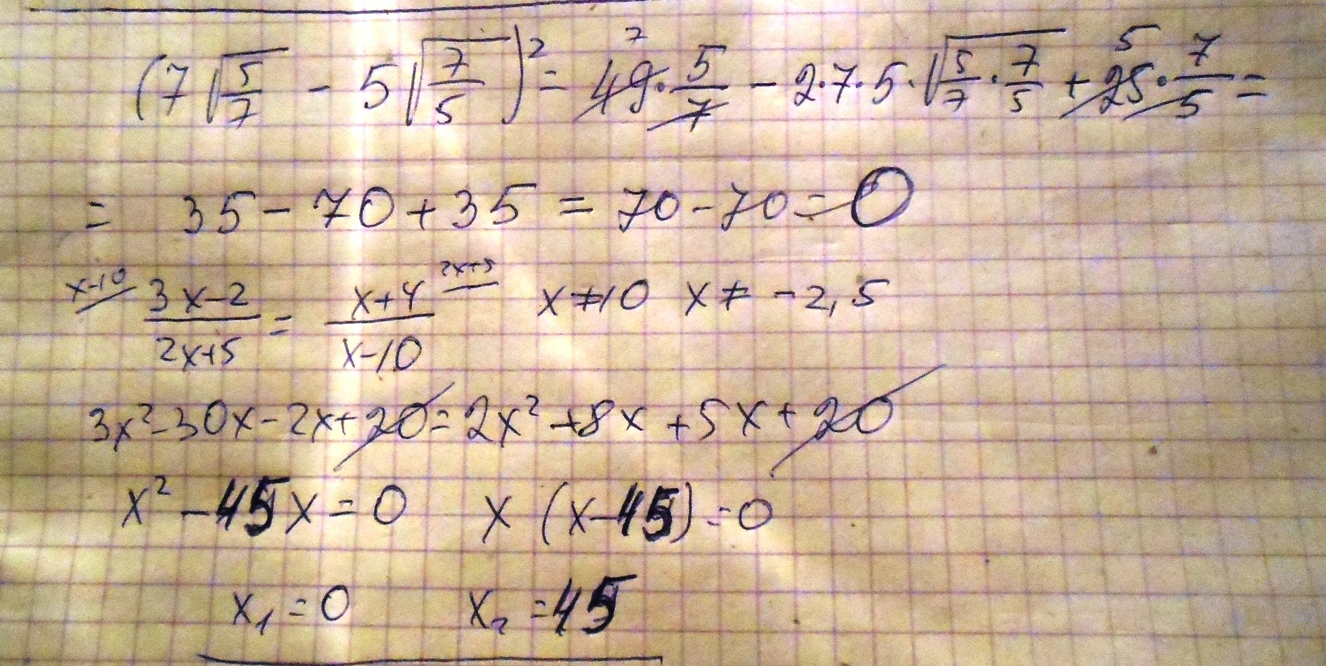 (7√5/7 - 5√7/5)² = 49·5/7 - 2·7·5·√5/7·7/5 + 25·7/5 =
= 35 - 70 + 35 = 70 - 70 = 0
x-10 (3x-2)/(2x+5) = (x+4)/(x-10) 2x+5 x≠10 x≠ -2,5
3x²-30x-2x+20=2x²+8x+5x+20
x²-45x=0 x(x-45)=0
x₁=0 x₂=45